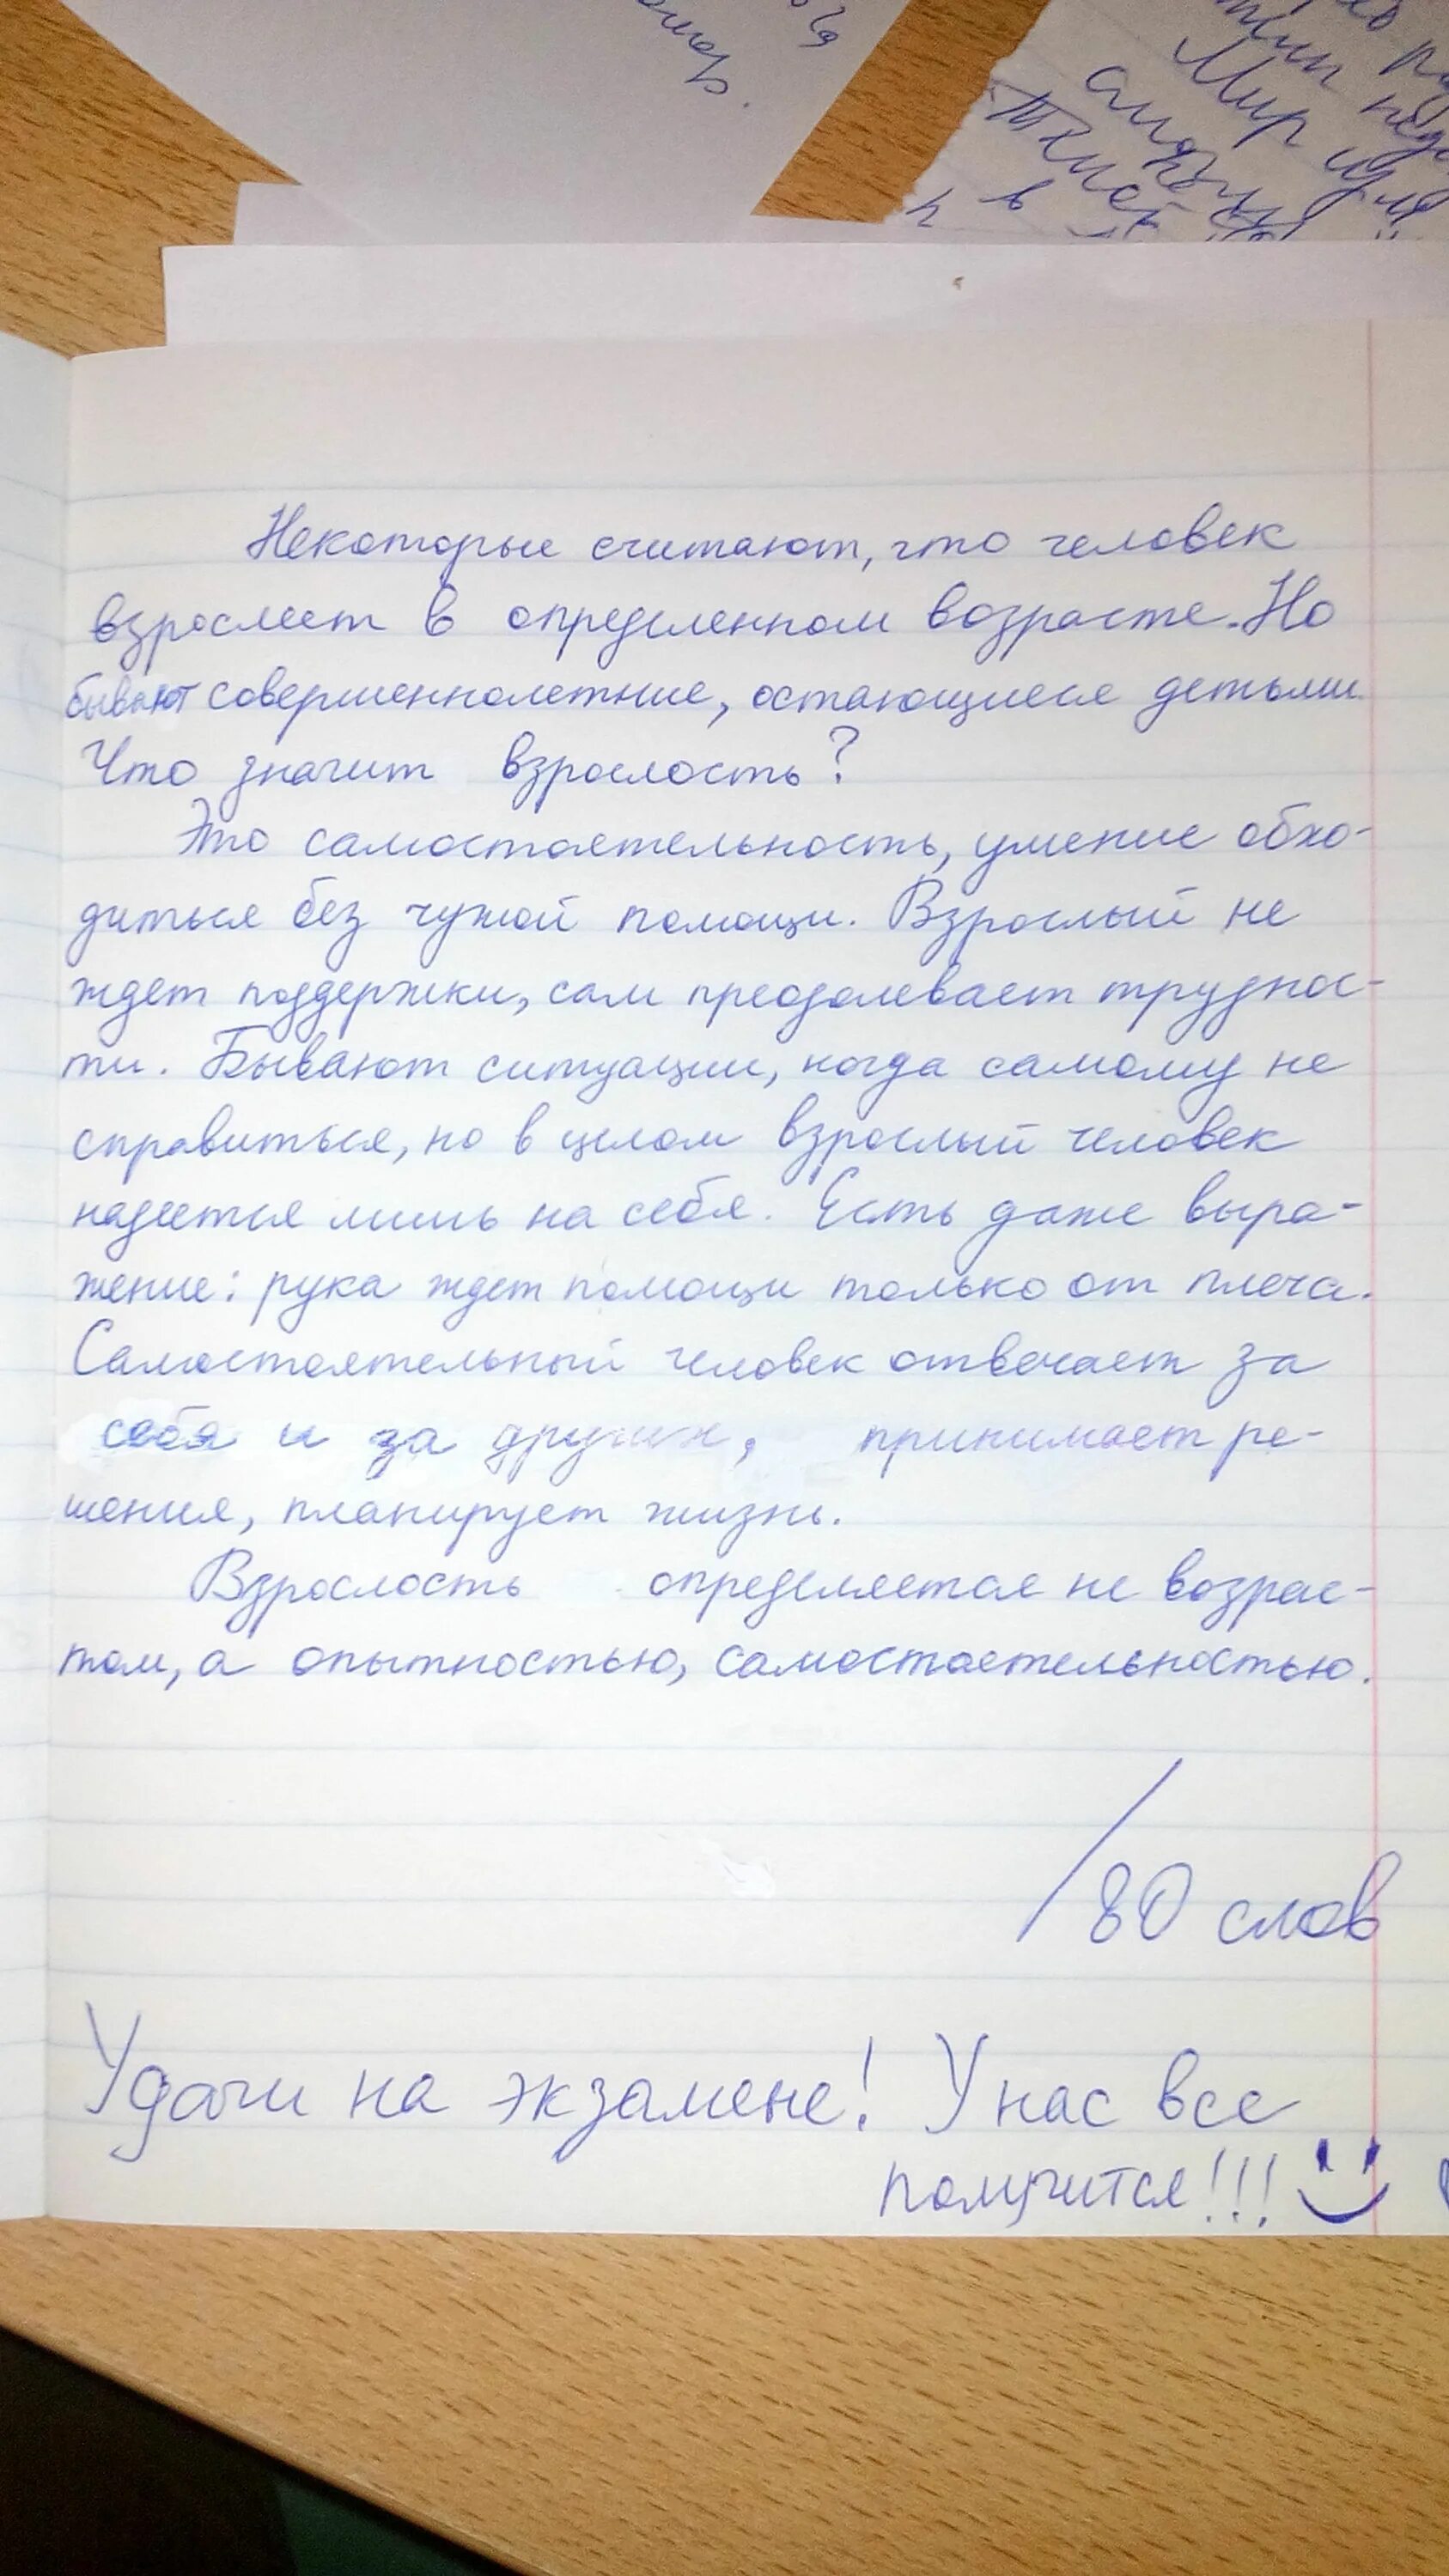 Некоторые считают, что человек
взрослеет в определенном возрасте. Но
бывают совершеннолетние, остающиеся детьми.
Что значит взрослость?
Это самостоятельность, умение обхо-
диться без чужой помощи. Взрослый не
ждет поддержки, сам преодолевает труднос-
ти. Бывают ситуации, когда самому не
справиться, но в целом взрослый человек
надеется лишь на себя. Есть даже выра-
жение: рука ждет помощи только от плеча.
Самостоятельный человек отвечает за
себя и за других, принимает ре-
шения, планирует жизнь.
Взрослость определяется не возрас-
том, а опытностью, самостоятельностью.
/80 слов
Удачи на экзамене! У нас все
получится!!!